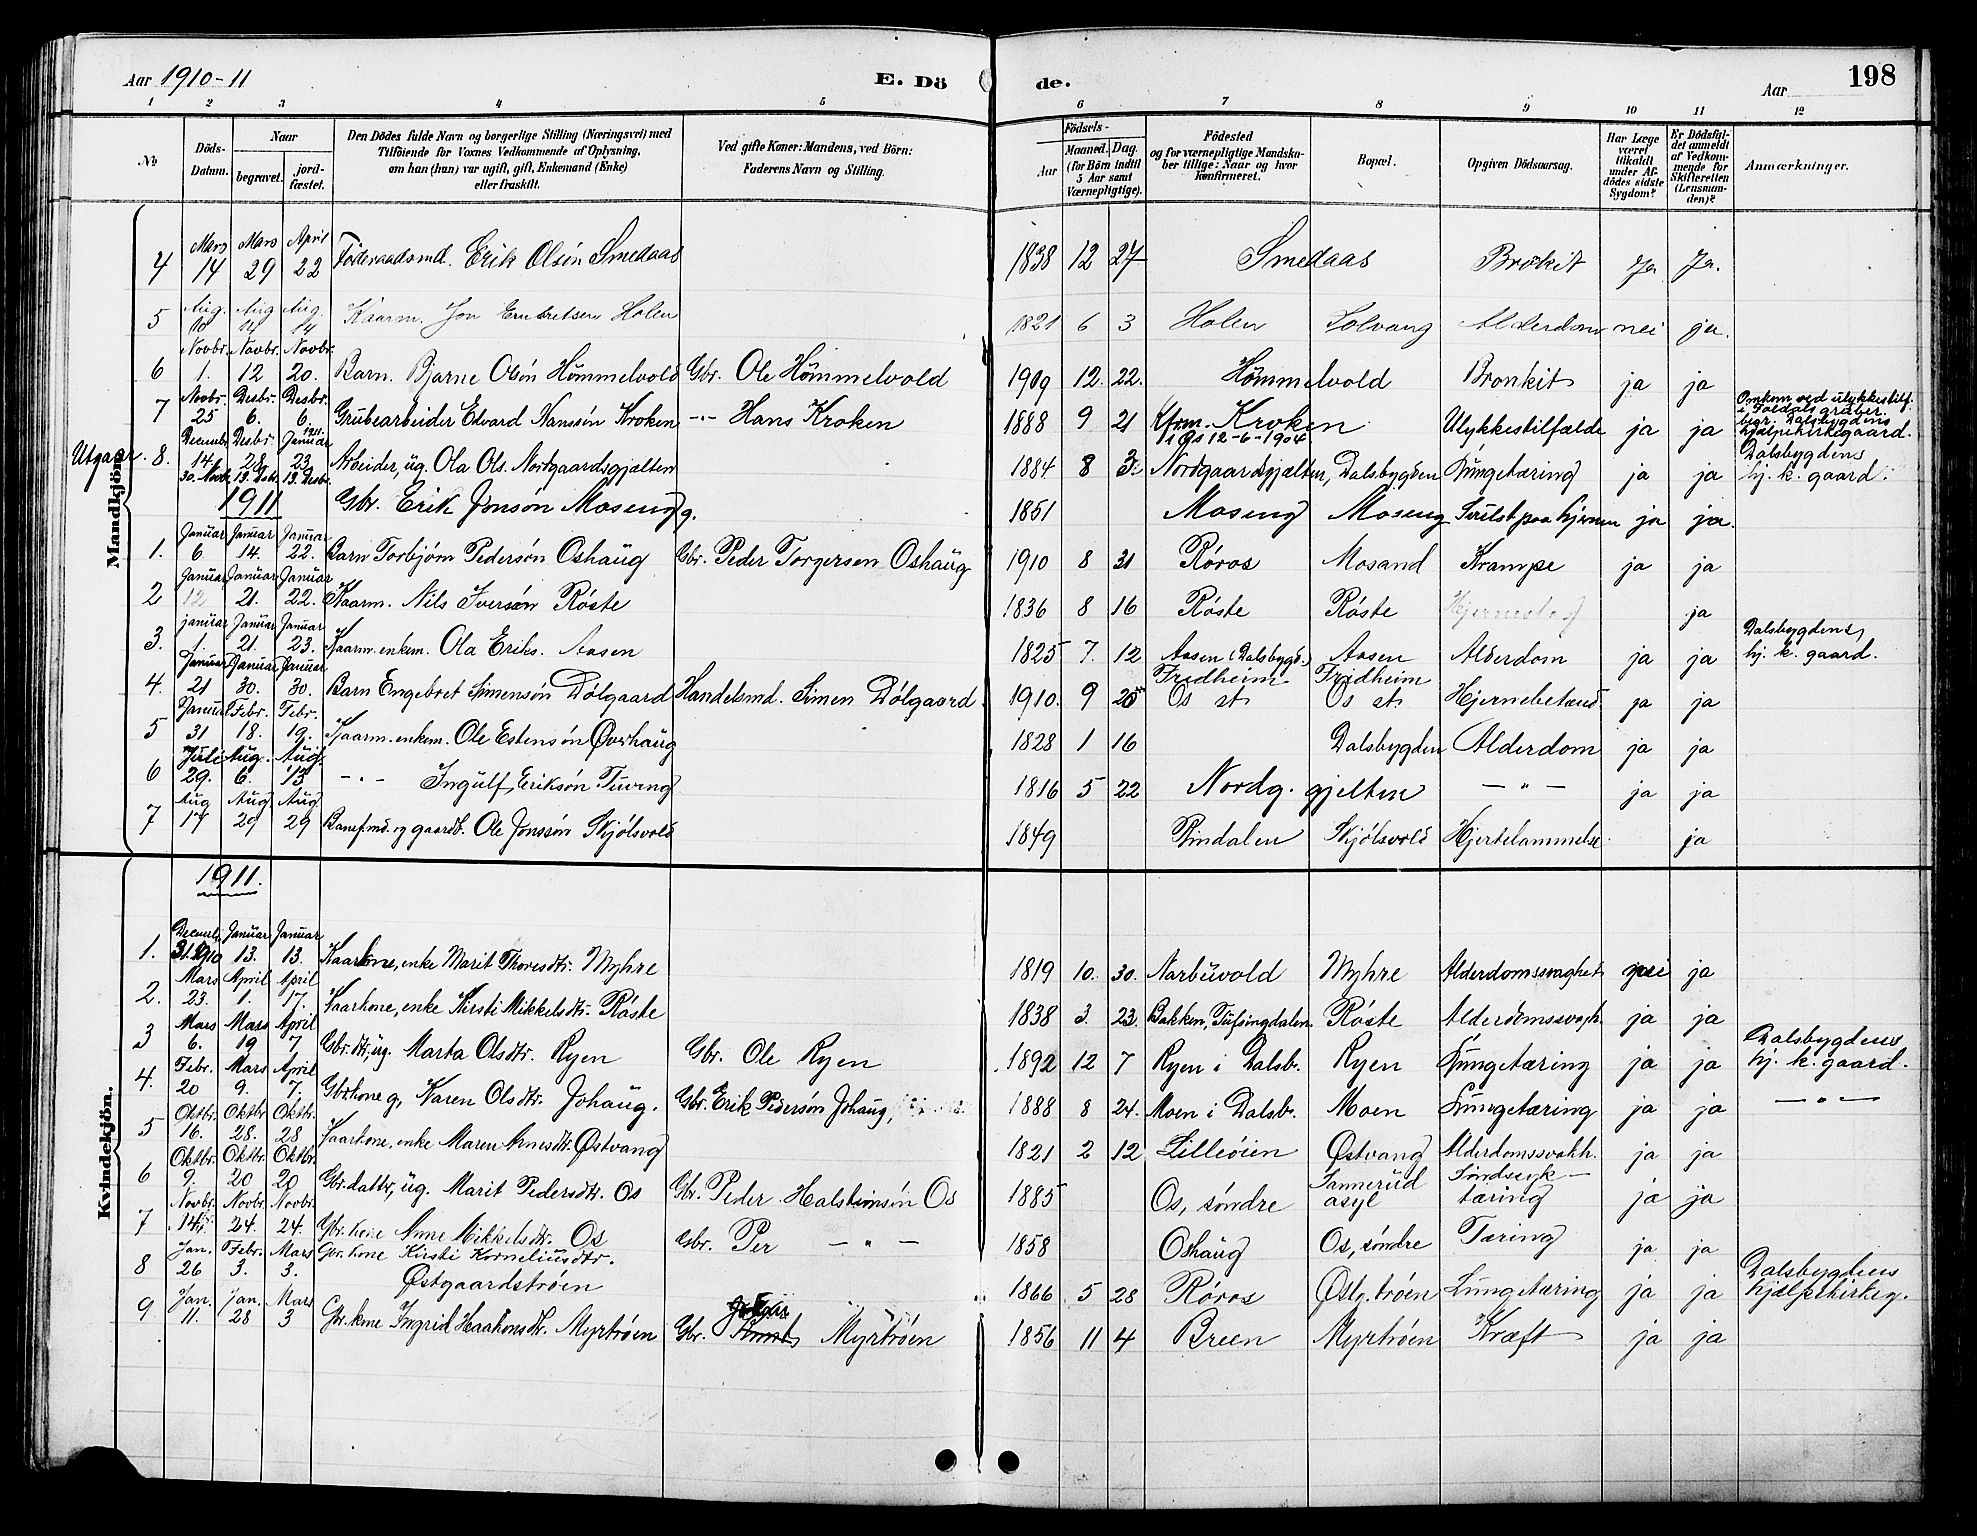 Aar 1910-11
E. Dö
de.
Aar
198
1 2 3 4 5 6 7 8 9 10 11 12
No
Döds-Datum.
Naar
begravet.
jord-fæstet.
Den Dödes fulde Navn og borgerlige Stilling (Næringsvei) med
Tilföiende for Voxnes Vedkommende af Oplysning,
om han (hun) var ugift, gift, Enkemand (Enke)
eller fraskilt.
Ved gifte Koner: Mandens, ved Börn:
Faderens Navn og Stilling.
Födsels-
Aar
Maaned. Dag.
(for Börn indtil
5 Aar samt
Værnepligtige).
Födested
og for værnepligtige Mandska-
ber tillige: Naar og hvor
konfirmeret.
Bopæl.
Opgiven Dödsaarsag.
Har Læge
været
tilkaldt
under Af-
dödes sidste
Sygdom?
Er Dödsfal-
det anmeldt
af Vedkom-
mende for
Skifteretten
(Lensman-
den)?
Anmærkninger.
Mandkjön.
4 Mars 14 Mars 29 April 22 Föderaadsmd. Erik Olsön Smedaas 1838 12 27 Smedaas Brokit Ja Ja.
5 Aug. 10 Aug 14 Aug. 14 Kaarm. Jon Embretsen Holen 1821 6 3 Holen Solvang Alderdom nei ja.
6 Novbr. 1. Novbr. 12 Novbr. 20. Barn Bjarne Olsön Hömmelvold Gbr. Ole Hömmelvold 1909 12. 22. Hömmelvold Bronkit ja ja
7 Novbr. 25 Desbr. 6. Desbr. 6. Grubearbeider Edvard Hanssön Kroken -"- Hans Kroken 1888 9 21 Kroken Ulykkestilfælde ja ja
i Os 12-6-1904
Omkom ved ulykkestilf.
i Foldals gruber.
begr. Dalsbygdens
hjælpekirkegaard.
Utgaar 8. Decembr 14. Desbr. 28 Januar 1911 23. Arbeider, üg. Ola Ols. Nordgaardsgjelten 1884 8 Nordgaardsgjelten, Dalsbygden Lungetæring ja ja Dalsbygdens
hj. k. gaard.
30. Novbr. 13. Dsbr. 13. Desbr. Gbr. Erik Jonsön Moseng g. 1851 Moseng Moseng Svulst paa hjernen ja ja.
1911
1. Januar 6. Januar 14. Januar 22. Barn Torbjörn Pedersön Oshaug Gbr. Peder Torgersen Oshaug 1910 8 31 Röros Mosand Krampe ja ja
2 Januar 12 Januar 21. Januar 22. Kaarm. Nils Iversön Röste 1836 8 16 Röste Röste Hjerneslag ja
3. januar 1. Januar 21. Januar 23. Kaarm. enkem. Ola Eriks. Aasen 1825 7. 12 Aasen (Dalsbygd.) Aasen Alderdom ja ja Dalsbygdens
hj. k. gaard.
4. Januar 21 Januar 30. Januar 30. Barn Engebret Simensön Dölgaard Handelsmd. Simen Dölgaard. 1910. 9 Fredheim
Os st Fredheim
Os st. Hjernebetænd. ja ja
5 Januar 31 Febr. 18. Febr. 19. Kaarm. enkem. Ole Estensön Øverhaug 1828 1 16 Dalsbygden Alderdom ja ja
6 Juli 29. Aug. 6. Aug. 13 -"- Ingulf Eriksön Tuveng 1816 5 22 Nordg. gjelten -"- ja ja
7 Aug 17 Aug 29 Aug 29 Banef.md. og gaardb. Ole Jonssön Skjölsvold 1849 Rindalen Skjölsvold Hjertelammelse ja
1911.
Kvindekjön.
1. Decembr. 31. 1910 Januar 13. Januar 13. Kaarkone, enke Marit Thoresdtr. Myhre 1819 10. 30. Narbuvold Myhre Alderdomssvaghet nei ja
2. Mars 23. April 1. April 17. Kaarkone, enke Kirsti Mikkelsdtr. Röste 1838 3. 23. Bakken, Tufsingdalen Röste Alderdomssvagh. ja ja
3 Mars 6. Mars 19 April 7 Gbr. dtr, üg. Marta Olsdtr. Ryen Gbr. Ole Ryen 1892 12 7 Ryen i Dalsb. Ryen Lungetæring ja ja Dalsbygdens
hj. k. gaard.
4. Febr. 20 Mars 9. April 7. Gbrkone g, Karen Olsdtr. Johaug. Gbr. Erik Pedersön Johaug, 1888 8 24. Moen i Dalsb. Moen Lungetæring ja ja -"-
5 Oktbr. 16. Oktbr 28. Oktbr. 28 Kaarkone, enke Maren Arnesdtr. Østvang 1821 2 12 Lilleöien Østvang Alderdomssvakh. ja ja
6 Oktbr. 9. Oktbr. 20 Oktbr. 20 Gbr. datter, üg. Marit Pedersdtr. Os Gbr. Peder Halstensön Os 1885 Os, söndre Sannerud
asyl Sindssyk-
tæring ja ja
7 Novbr. 14. Novbr. 24. Novbr. 24. Gbr. kone Anne Mikkelsdtr. Os Gbr. Per -"- 1858 Oshaug Os, söndre Tæring ja ja
8 Jan. 26 Febr. 3. Mars 3. Gbr. kone Kirsti Korneliusdtr.
Østgaardströen 1866 5 28 Röros Östg. tröen Lungetæring ja ja Dalsbygdens
hjælpekirkeg.
9 Jan. 11. Jan. 28 Mars 3 Gbr. kone Ingrid Haakonsdtr. Myrtröen Gbr. Myrtröen 1856 11 4 Breen Myrtröen Kræft ja ja